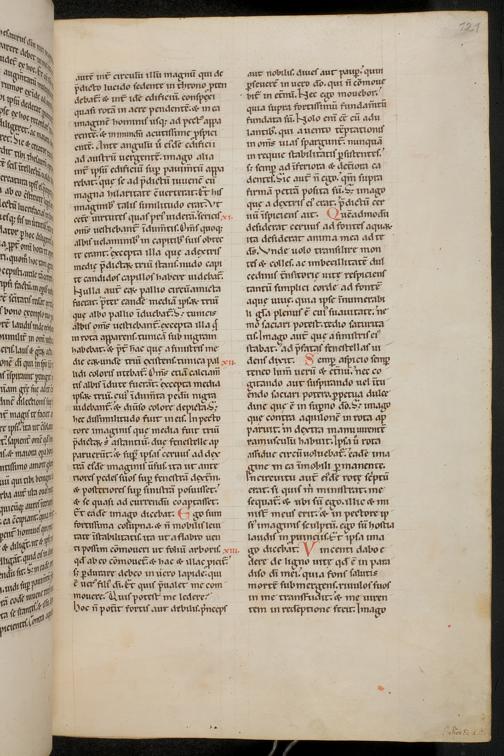 121
aut int circulū illū magnū qui de
p̄dicto lucido sedente in throno pten
debat: & int idē edificiū. conspexi
quasi rotā in aere pendentē. & in ea
imaginē hominis usq; ad pect⁹ appa
rentē. & in mundū acutissime p̄spici
entē. Ante angulū ū ei⁹dē edificii
ad austrū uergentē. imago alia
int ipsū edificiū sup pauimtū appa
rebat. que se ad p̄dictū iuuenē cū
magna hilaritate c̄uerterat. Et his
imaginib; talis similitudo erat. Vt
cetę uirtutes quas pr⁹ uiderā. sericis xi.
oms uestiebant᷑ idumtis. Oms quoq;
albis uelaminib; in capitib; suis obtec
tę erant. excepta illa que a dextris
medię p̄dictarū triū stans. nudo capi
te candidos capillos habere uidebat᷑.
Nulla aut eaꝝ pallio circūamicta
fuerat. pt̄ eandē mediā ipsaꝝ triū
que albo pallio iduebat᷑. S; tunicis
albis oms uestiebant᷑. excepta illa q̄
in rota apparens. tunicā sub nigram
habebat. & pt̄ hac que a sinistris me
dię eaꝝ unde triū existens. tunica pal xii.
lidi coloris nitebat᷑. Oms etiā calciam
tis albis idutę fuerant. excepta media
ipsaꝝ triū. cui⁹ idumta pedū nigra
uidebant᷑. & diuiso colore depicta. S;
hec dissimilitudo fuit in eis. In pecto
re imaginis que media fuit triū
p̄dictaꝝ s̄ astantiū. due fenestelle ap
paruerūt. & sup ipsas ceruus ad dex
trā ei⁹dē imaginis u͛sus. ita ut ante
riores pedes suos sup fenestrā dextrā.
& posteriores sup sinistrā posuisset.
& se quasi ad currendū coaptasset.
Et eadē imago dicebat. Ego sum
fortissima columpna. & n̄ mobilis leui
tate īstabilitatis. ita ut a flabro uen
ti possim cōmoueri ut foliū arboris. xiii.
qd̄ ab eo cōmouet᷑. & hac & illac piicit᷑.
S; p̄durare debeo in uero lapide. qui
ē uer⁹ fili⁹ di. Et quis p̄ualet me com
mouere. Quis potest me ledere.
Hoc n̄ potit fortis aut debilis. p̄nceps
aut nobilis. diues aut paup. quin
p̄seuerē in uero do. qui n̄ cōmoue
bit᷑ in et̄nū. Nec ego mouebor.
quia supra fortissimū fundamtū
fundata sū. Nolo eni ēē cū adu
lantib; qui a uento tēptationis
in oms uias sparguntur. nunquā
in requie stabilitatis p̄sistentes.
s; semp ad īferiora & deteriora ca
dentes. Sic aut n̄ ego. qm̄ supra
firmā petrā posita sū. Sz imago
que a dextris ei⁹ erat. p̄dictū cer
uū īspiciens ait. Quēadmodū
desiderat ceruus ad fontes aquaꝝ:
ita desiderat anima mea ad te
ds. Unde uolo transilire mon
tes & colles. ac imbecillitatē dul
cedinis t̄nsitorię uitę respiciens.
tantū simplici corde ad fontē
aque uiuę. quia ipse īnumerabi
li gl̄a plenus ē. cui⁹ suauitate. ne
mo saciari potest. tedio saturita
tis. Imago aut que a sinistris ei⁹
stabat. ad p̄fatas fenestellas ui
dens dixit. Semp aspicio semp
t̄neo lum̄ uerū & et̄nū. nec co
gitando aut suspirādo uel itu
endo saciari potero. p̄petua dulce
dine que ē in sup̄no do. Sz imago
que contra aquilonē in rota ap
paruit. in dextra manu uirentē
ramusculū habuit. Ipsa ū rota
assidue circūuoluebat᷑. eadē ima
gine in ea īmobili p̄manente.
In circuitu aut ei⁹dē rotę sc̄ptū
erat. si quis m̄ ministrat. me
sequat᷑. & ubi sū ego. illic & mi
nist̄ meus erit. & in pectore ip
si⁹ imaginis sculptū. ego sū hostia
laudis in puinciis. Et ipsa ima
go dicebat. Vincenti dabo e
dere de ligno uitę qd̄ ē in para
diso di mei. quia fons salutis
mortē submergens. riuulos suos
in me transfudit. & me uiren
tem in redēptione fecit. Imago